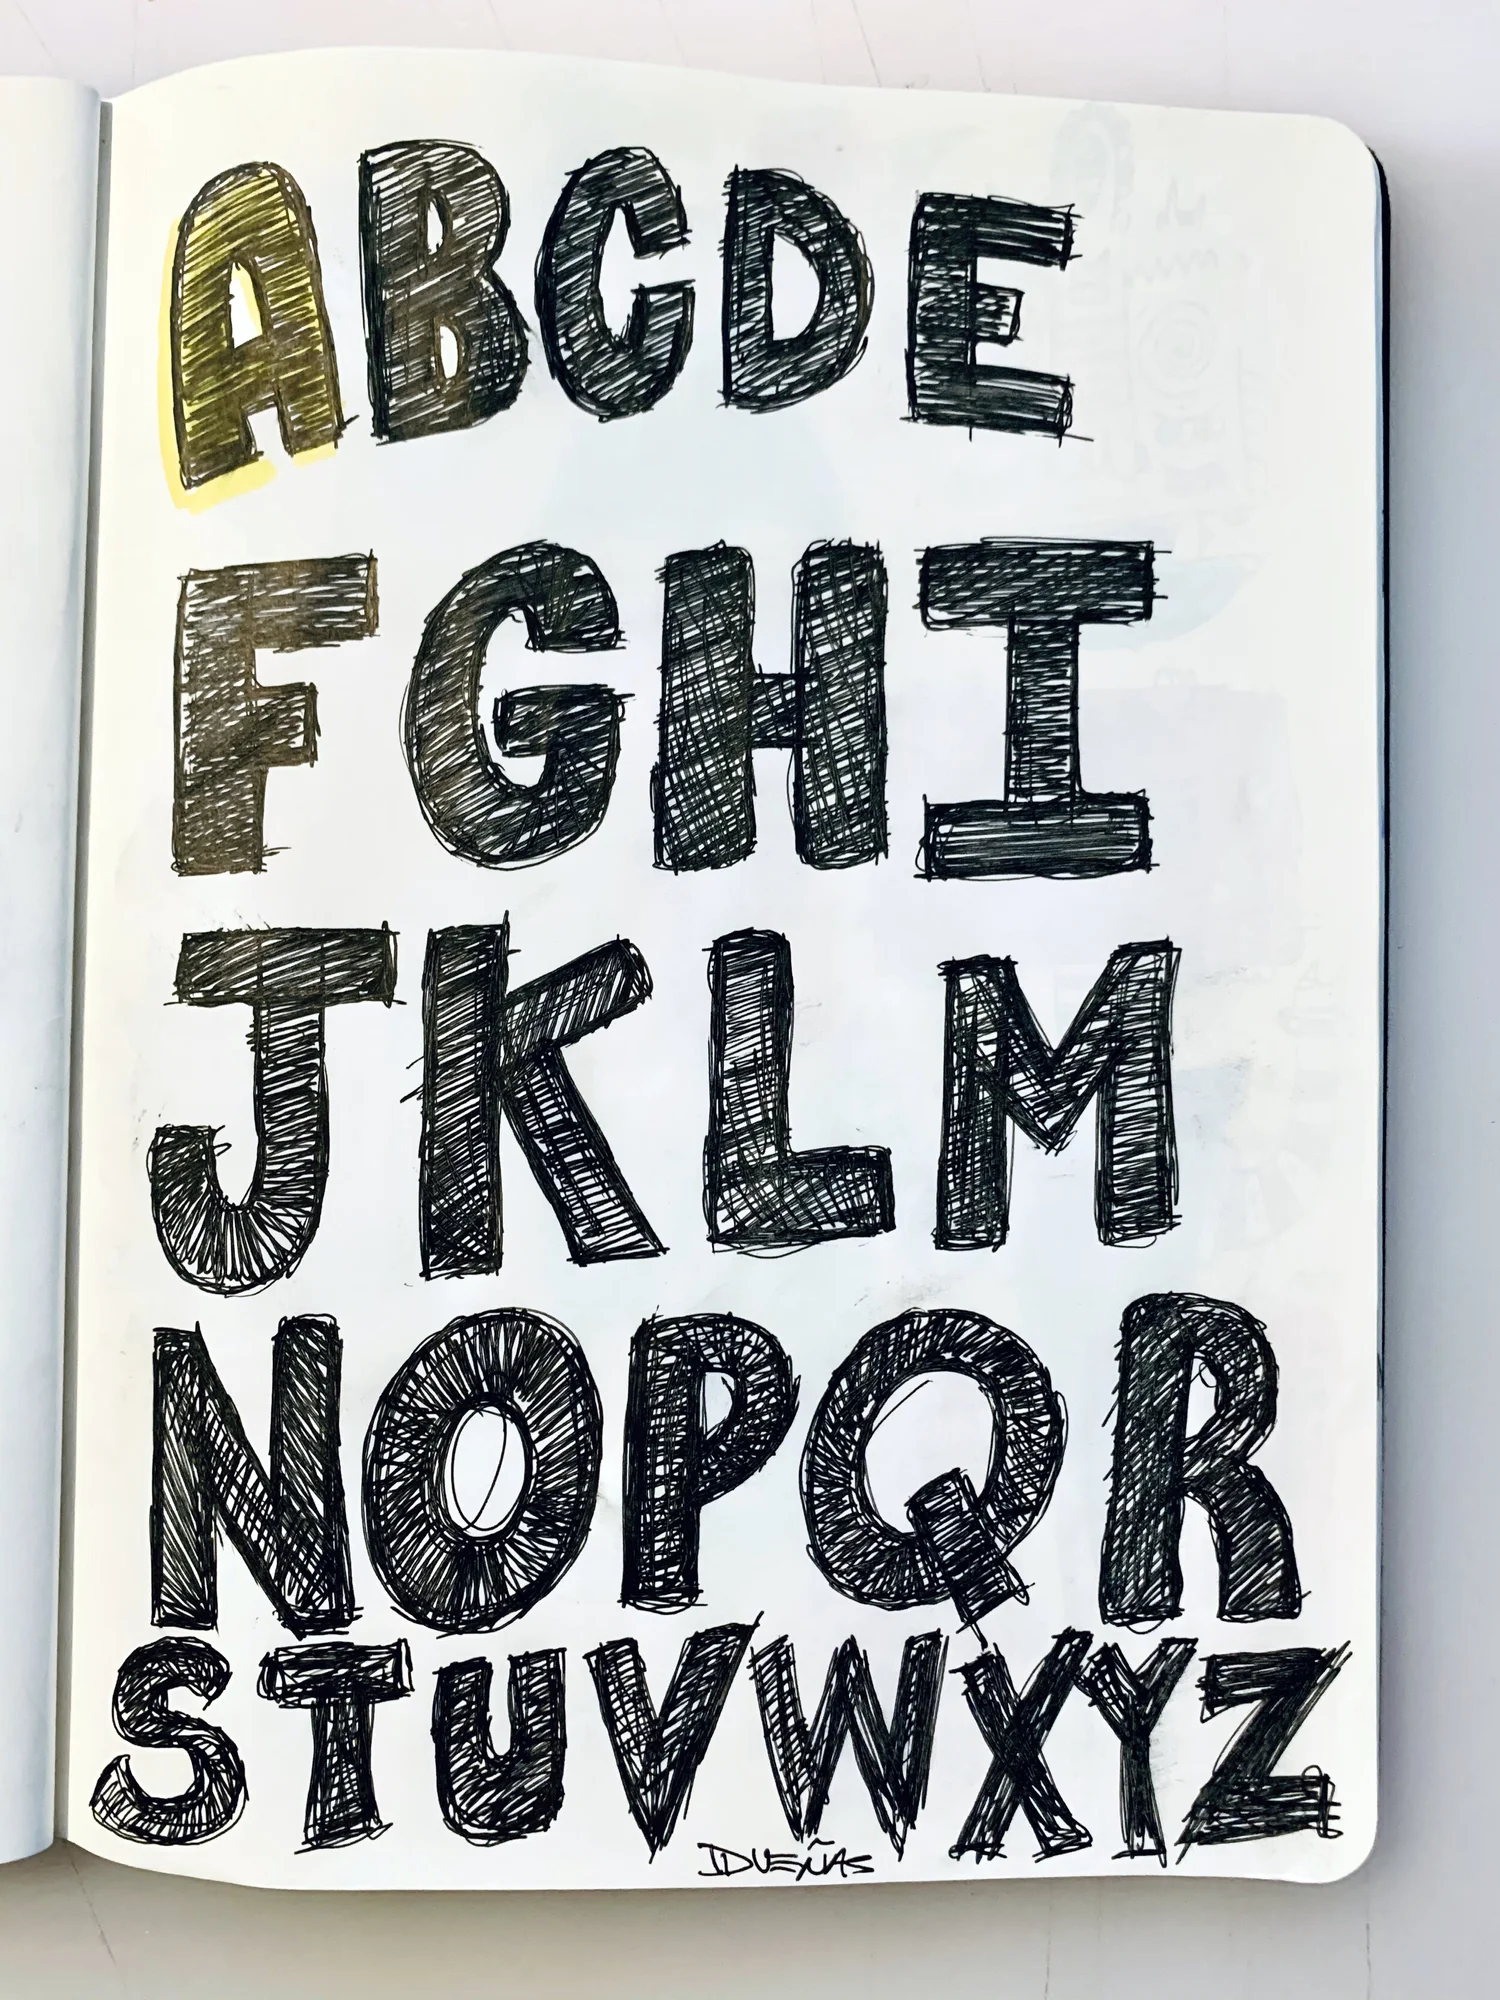 ABCDE
FGHI
JKLM
NOPQR
STUVWXYZ
JDUEÑAS